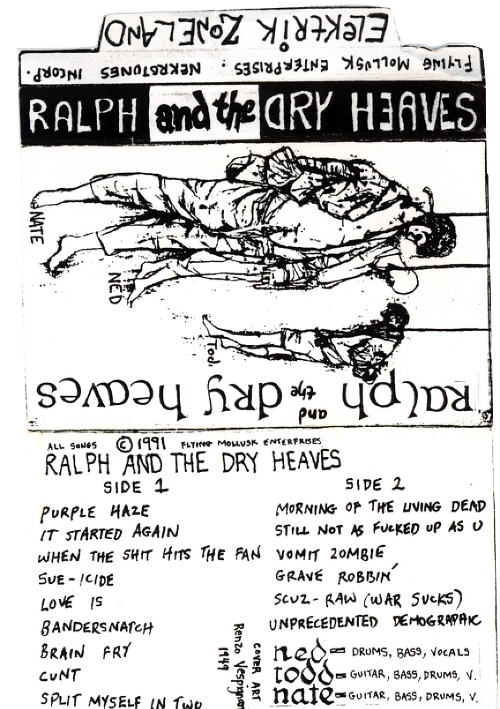 ELEKTRIK ZONELAND
FLYING MOLLUSK ENTERPRISES : NEKRATONES INCORP.
RALPH and the DRY HEAVES
NATE
NED
Tod
Ralph and the dry heaves
ALL SONGS © 1991 FLYING MOLLUSK ENTERPRISES
RALPH AND THE DRY HEAVES
SIDE 1
PURPLE HAZE
IT STARTED AGAIN
WHEN THE SHIT HITS THE FAN
SUE-ICIDE
LOVE IS
BANDERSNATCH
BRAIN FRY
CUNT
SPLIT MYSELF IN TWO
SIDE 2
MORNING OF THE LIVING DEAD
STILL NOT AS FUCKED UP AS U
VOMIT ZOMBIE
GRAVE ROBBIN'
SCUZ-RAW (WAR SUCKS)
UNPRECEDENTED DEMOGRAPHIC
COVER ART
Renzo Vespignani
1949
ned = DRUMS, BASS, VOCALS
todd = GUITAR, BASS, DRUMS, V.
nate = GUITAR, BASS, DRUMS, V.